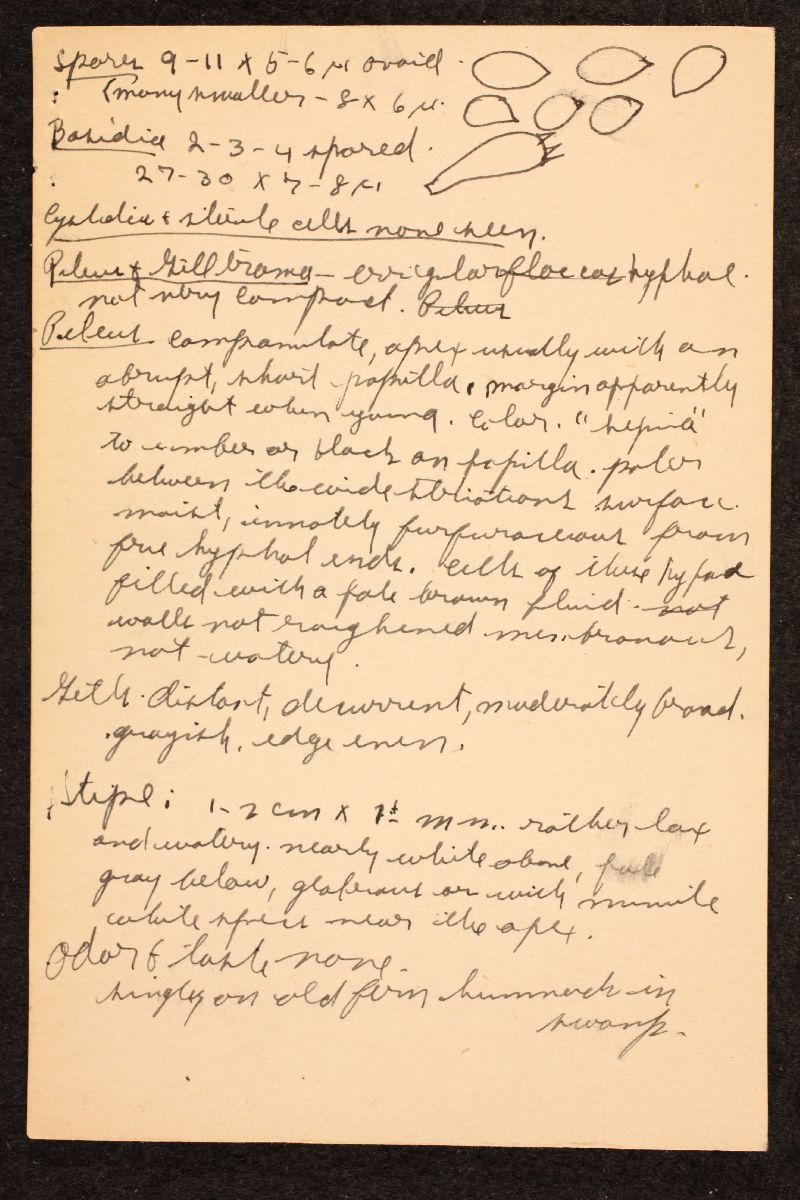 Spores 9-11 x 5-6 µ ovoid.
(many smaller - 8 x 6 µ.
Basidia 2-3-4 spored.
27-30 x 7-8 µ
Cystidia & sterile cells none seen.
Pileus & Gill trama - irregular floccose hyphae.
not very compact. Pileus
Pileus campanulate, apex usually with an
abrupt, short papilla, margin apparently
straight when young. Color. "sepia"
to umber or black on papilla. paler
between the wide striations surface
moist, innately furfuraceous from
free hyphal ends. Cells of these hyphae
filled with a pale brown fluid. not
walls not roughened membranous,
not watery.
Gills. distant, decurrent, moderately broad.
grayish, edge even.
Stipe: 1-2 cm x 1± mm. rather lax
and watery. nearly white above, pale
gray below, glabrous or with minute
white specks near the apex.
Odor & taste none.
singly on old fern hummock in
swamp.